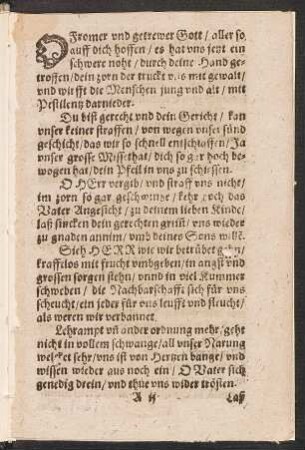 O Fromer vnd getrewer Gott / aller so
auff dich hoffen / es hat vns jetzt ein
schwere noht / durch deine Hand ge-
troffen / dein zorn der truckt vns mit gewalt /
vnd wirfft die Menschen jung vnd alt / mit
Pestilentz darnieder.
Du bist gerecht vnd dein Gericht / kan
vnser keiner straffen / von wegen vnser sünd
geschicht / das wir so schnell entschlaffen / Ja
vnser grosse Missethat / dich so gar hoch be-
wogen hat / dein Pfeil in vns zu schiessen.
O HErr vergib / vnd straff vns nicht /
im zorn so gar geschwinde / kehr doch das
Vater Angesicht / zu deinem lieben Kinde /
laß sincken dein gerechten grim̃ / vns wieder
zu gnaden annim / vmb deines Sons willē.
Sieh HERR wie wir betrübet gehn /
krafftlos mit frucht vmbgeben / in angst vnd
grossen sorgen stehn / vnnd in viel Kummer
schweben / die Nachbarschafft sich für vns
scheucht / ein jeder für vns leufft vnd fleucht /
als weren wir verbannet.
Lehrampt vñ ander ordnung mehr / geht
nicht in vollem schwange / all vnser Narung
welcket sehr / vns ist von Hertzen bange / vnd
wissen wieder aus noch ein / O Vater sich
genedig drein / vnd thue vns wider trösten.
A ij Laß